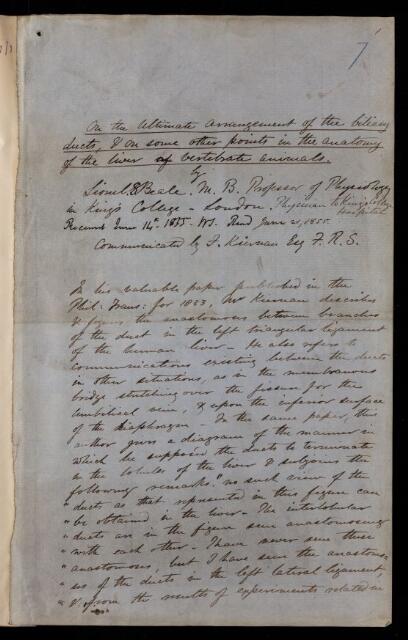 7
On the Ultimate arrangement of the biliary
ducts, & on some other points in the anatomy
of the liver of vertebrate animals.
by
Lionel S Beale M. B. Professor of Physiology
in King's College - London. Physician to King's College
Hospital
Received June 14th 1855. Read June 21, 1855.
Communicated by F. Kiernan Esq F. R. S.
In his valuable paper published in the
Phil: Trans: for 1833, Mr Kiernan describes
& figures the anastomoses between branches
of the duct in the left triangular ligament
of the human liver - He also refers to
communications existing between the ducts
in other situations, as in the membranous
bridge stretching over the fissure for the
umbilical vein, & upon the inferior surface
of the diaphragm - In the same paper, this
author gives a diagram of the manner in
which he supposed the ducts to terminate
in the lobules of the liver & subjoins the
following remarks. "no such view of the
"ducts as that represented in this figure can
"be obtained in the liver - The interlobular
"ducts are in the figure seen anastomosing
"with each other - I have never seen these
"anastomoses, but I have seen the anastomo-
"ses of the ducts in the left lateral ligament,
"& from the results of experiments related in